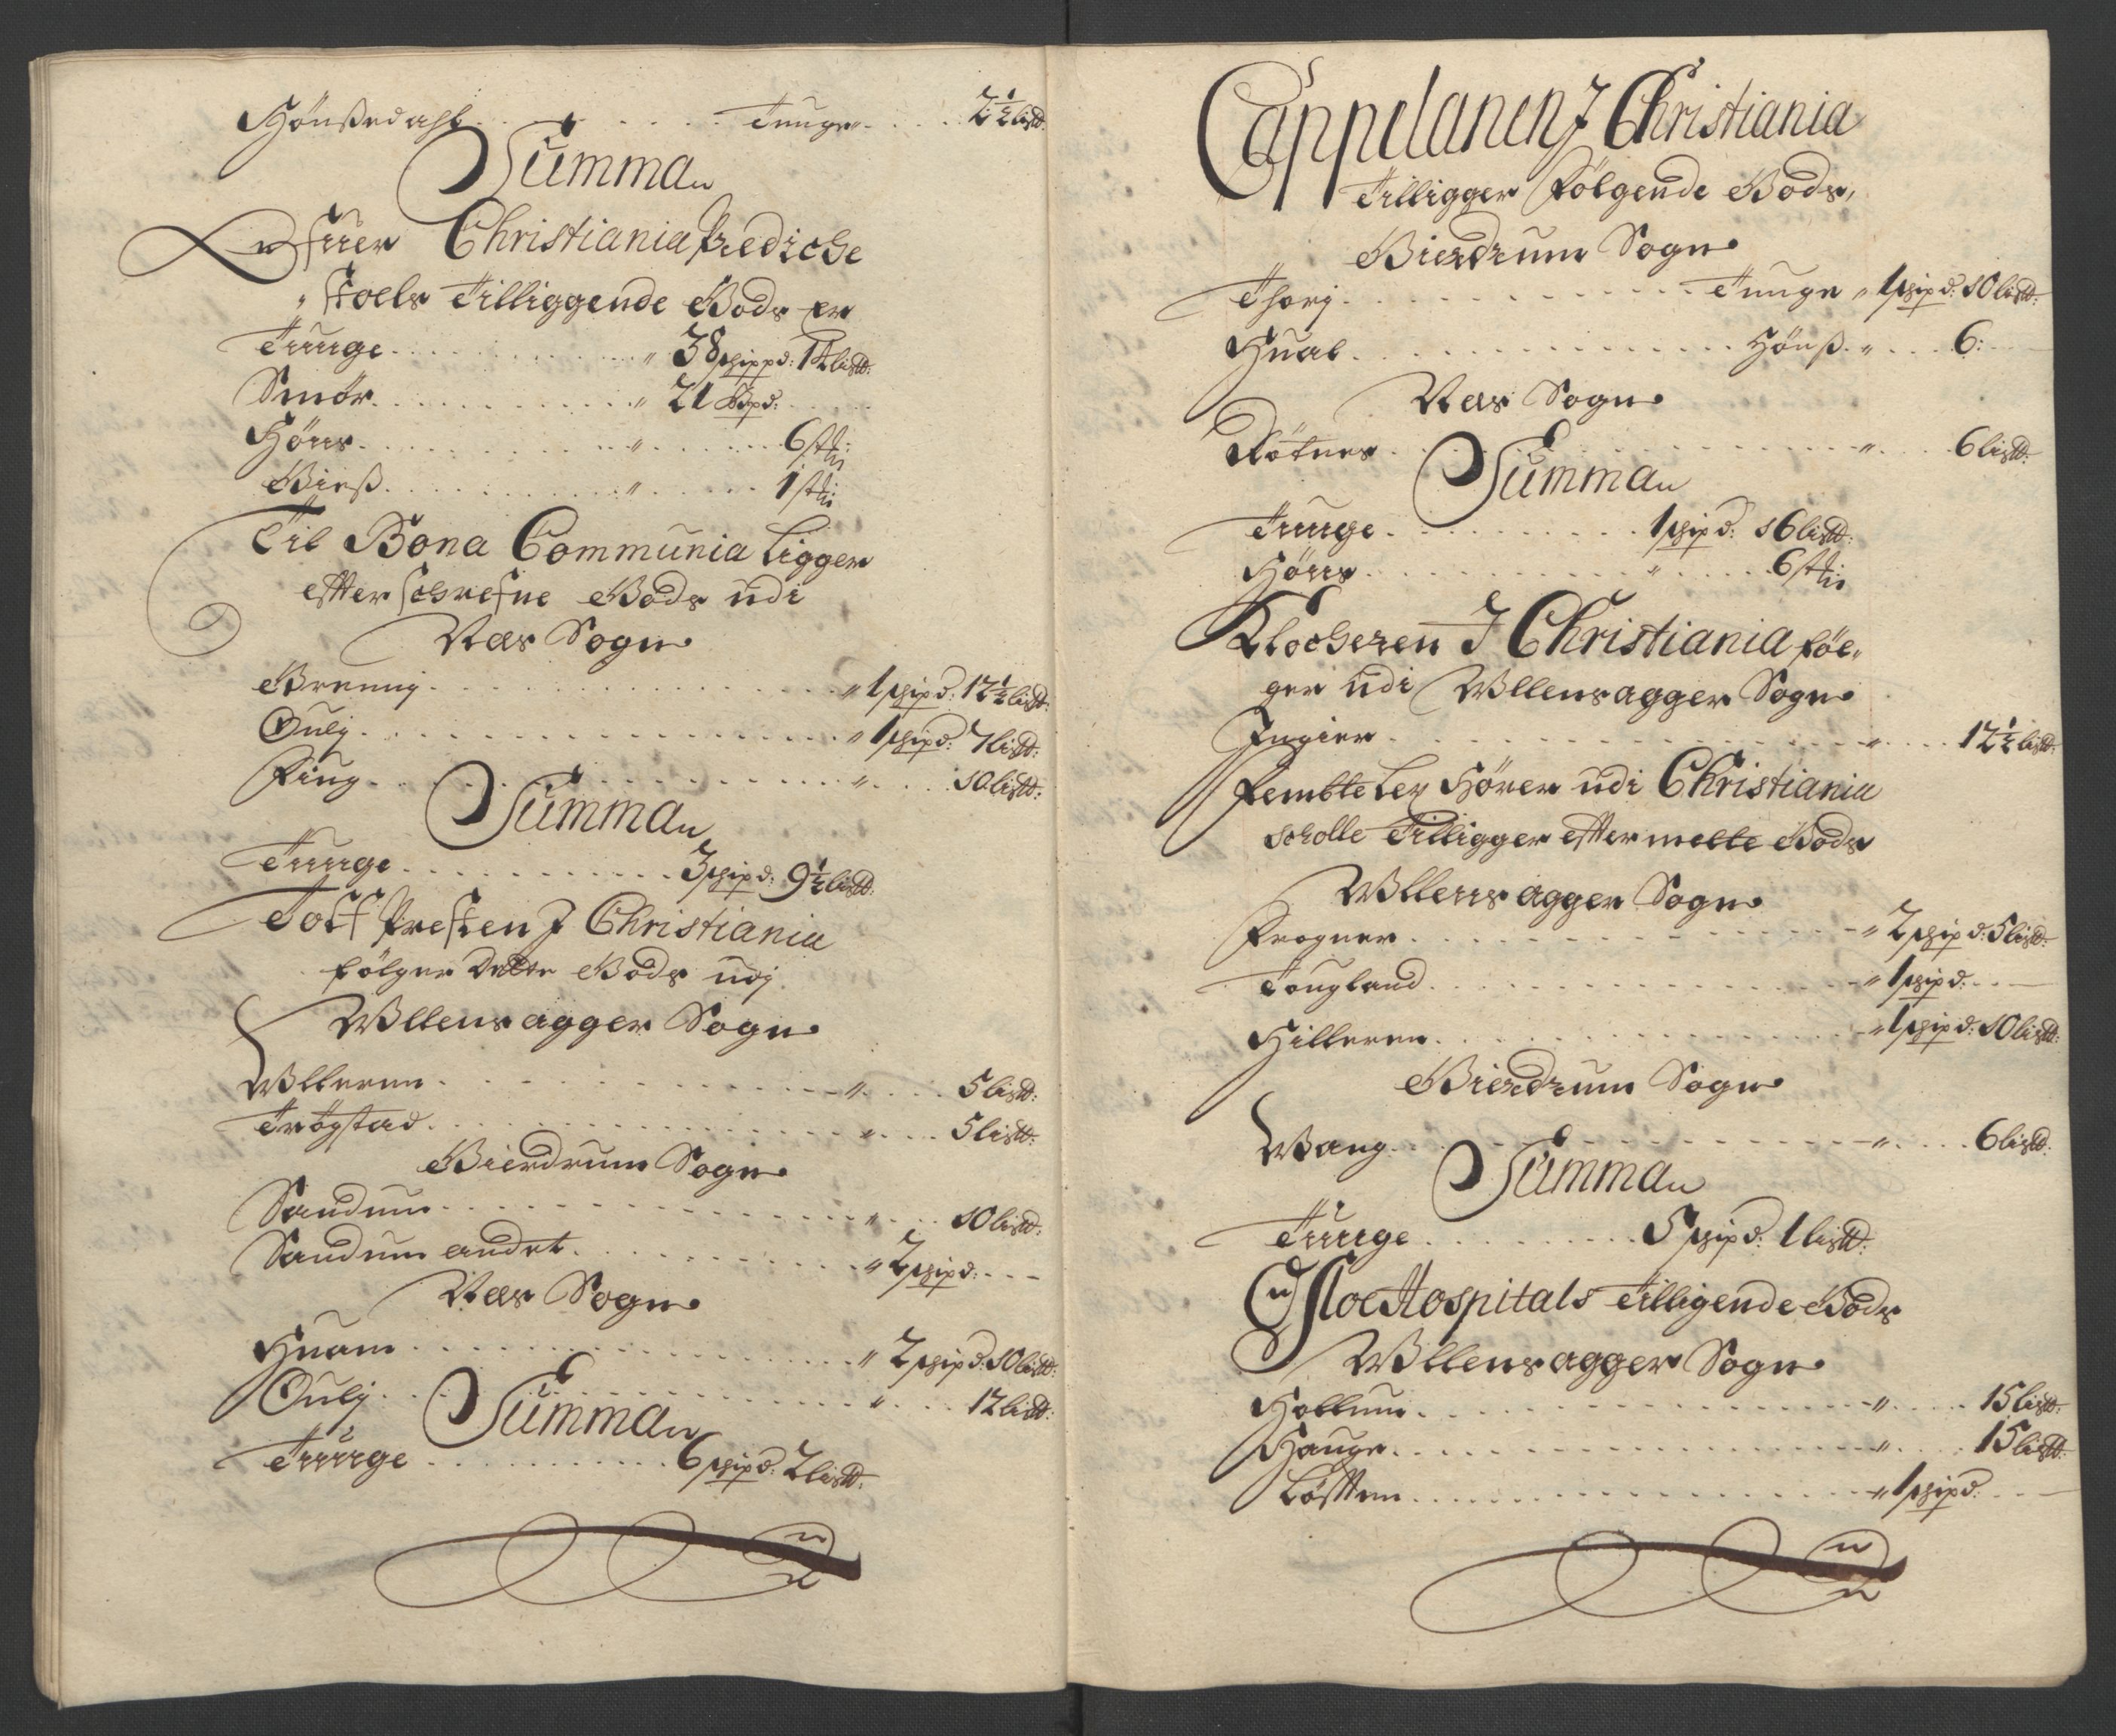 Hönßedahl . . . . . . . . Tunge . . . . 2½ listd:
Summa
Ofuer Christiania Prediche
stoels Tilliggende Gods er
Tunge . . . . . . . . . . „ 38 schippd: 14 listd:
Smör . . . . . . . . . . „ 21 Bpd:
Höns . . . . . . . . . . „ . . . . 6 stk:
Gieß . . . . . . . . . . „ . . . . 1 stk:
Til Bona Communia Ligger
effter schrefne Gods udi
Nes Sogn
Brennj . . . . . . . . . . „ 1 schipd: 12½ listd:
Oulj . . . . . . . . . . „ 1 schipd: 7 listd:
Ring . . . . . . . . . . „ . . . . 10 listd:
Summa
Tunge . . . . . . . . . . 3 schipd: 9½ listd:
Toltf Presten J Christiania
fölger Dette Gods udj
Ullensagger Sogn
Ulleren . . . . . . . . . . „ . . . . 5 listd:
Trögstad . . . . . . . . . . „ . . . . 5 listd:
Gierdrum Sogn
Sandum . . . . . . . . . . „ . . . 10 listd:
Sandum andet . . . . . . . . . . „ 2 schipd: . . .
Nes Sogn
Huam . . . . . . . . . . „ 2 schipd: 10 listd:
Oulj . . . . . . . . . . „ . . . . 12 listd:
Summa
Tunge . . . . . . . . . . 6 schipd: 2 listd:
Cappelanen J Christiania
Tilligger Fölgende Gods,
Gierdrum Sogn
Thorj . . . . . . . . . . Tunge „ 1 schipd: 10 listd:
Hual . . . . . . . . . . Hönß „ . . . 6:
Nes Sogn
Rötnes . . . . . . . . . . „ . . . . 6 listd:
Summa
Tunge . . . . . . . . . . 1 schipd: 16 listd:
Höns . . . . . . . . . . „ . . . . 6 stk
Klocheren J Christiania föl-
ger udi Ullensagger Sogn
Ingier . . . . . . . . . . „ . . . . 12½ listd:
Fembte Lex Hörer udi Christiania
scholle Tilligger effter melte Gods
Ullensagger Sogn
Frogner . . . . . . . . . . „ 2 schipd: 5 listd:
Tougland . . . . . . . . . . „ 1 schipd: . . .
Hilleren . . . . . . . . . . „ 1 schipd: 10 listd:
Gierdrum Sogn
Wang . . . . . . . . . . „ . . . . 6 listd:
Summa
Tunge . . . . . . . . . . 5 schipd: 1 listd:
Osloe Hospitals Tilligende Gods
Ullensagger Sogn
Hollum . . . . . . . . . . „ . . . . 15 listd:
Hauge . . . . . . . . . . „ . . . . 15 listd:
Löstten . . . . . . . . . . „ 1 schipd: . . .